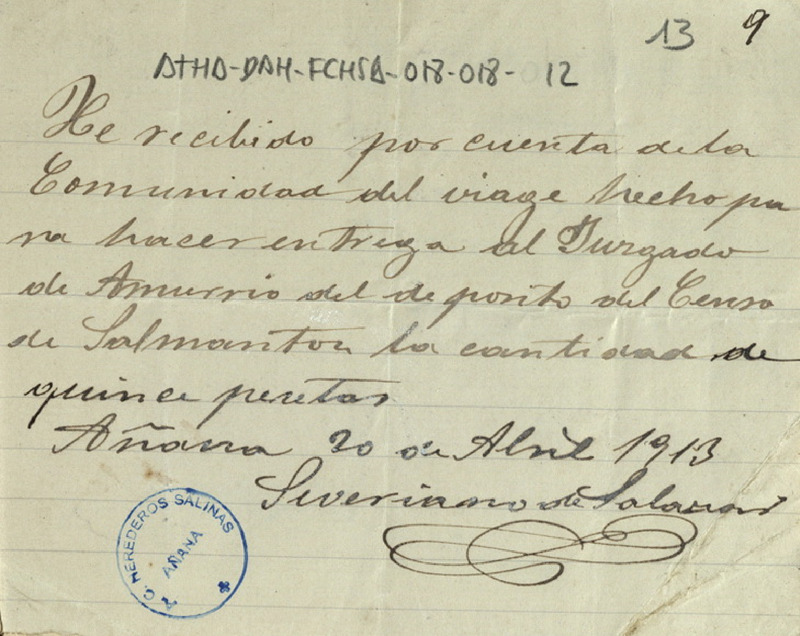 13 9
ATHA-DAH-FCHSA-018-018-012
He recibido por cuenta de la
Comunidad del viage hecho pa
ra hacer entrega al Jurgado
de Amurrio del deposito del Censo
de Salmanton la cantidad de
quince pesetas
Añana 20 de Abril 1913
Severiano de Salazar
C. HEREDEROS SALINAS
AÑANA